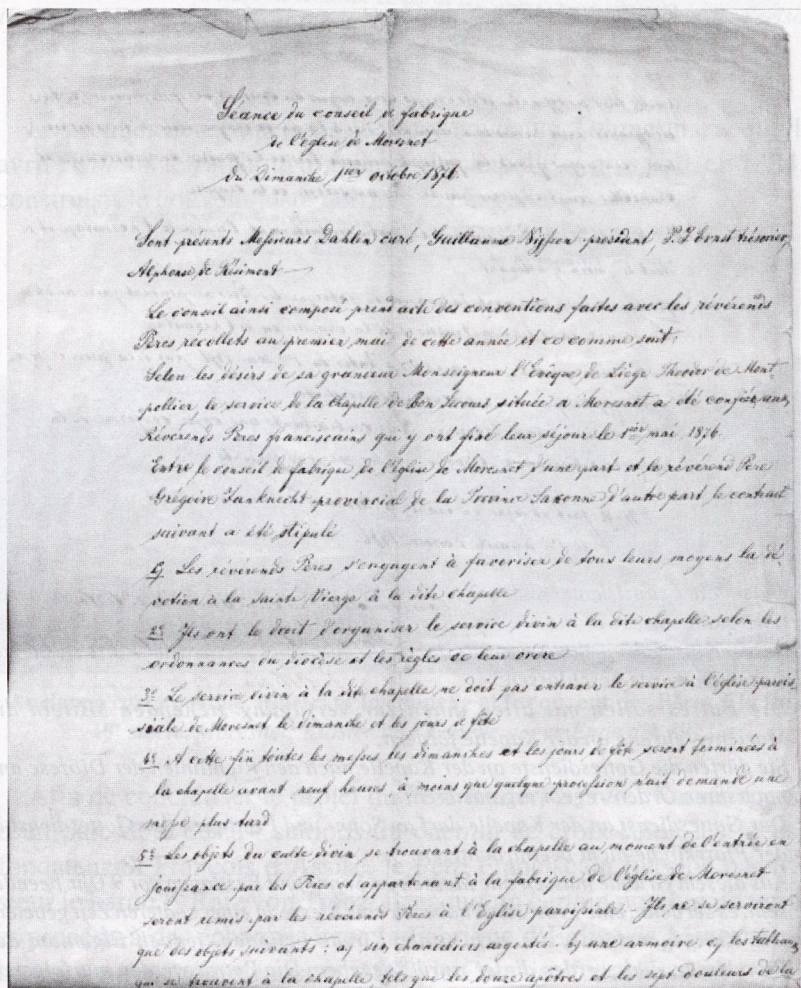 Séance du conseil de fabrique
de l'église de Moresnet
du Dimanche 1ier octobre 1876.
Sont présents Messieurs Dahlen curé, Guillaume Nyssen président, P. J Ernst trésorier,
Alphonse de Résimont
Le conseil ainsi composé prend acte des conventions faites avec les révérends
Pères recollets au premier mai de cette année et ce comme suit:
Selon les désirs de sa grandeur Monseigneur l'Evêque de Liège Theodor de Mont
pellier, le service de la Chapelle de Bon Secours située a Moresnet a été confiée aux
Révérends Pères franciscains qui y ont fixé leur séjour le 1ier mai 1876.
Entre le conseil de fabrique de l'église de Moresnet d'une part et le révérend Père
Grégoire Janknecht provincial de la Province Saxonne d'autre part le contract
suivant a été stipulé
1º Les révérends Pères s'engagent à favoriser de tous leurs moyens la dé-
votion à la Sainte Vierge à la dite chapelle
2º Ils ont le droit d'organiser le service divin à la dite chapelle selon les
ordonnances du diocèse et les règles de leur ordre
3º Le service divin à la dite chapelle ne doit pas entraver le service à l'église parois-
siale de Moresnet le dimanche et les jours de fête
4º A cette fin toutes les messes les dimanches et les jours de fête seront terminées à
la chapelle avant neuf heures, à moins que quelque procession n'ait demandé une
messe plus tard
5º Les objets du culte divin se trouvant à la chapelle au moment de l'entrée en
jouissance par les Pères et appartenant à la fabrique de l'église de Moresnet
seront remis par les révérends Pères à l'Eglise paroissiale. Ils ne se serviront
que des objets suivants: a) six chandeliers argentés b) une armoire c) les tableaux
qui se trouvent à la chapelle, tels que les douze apôtres et les sept douleurs de la